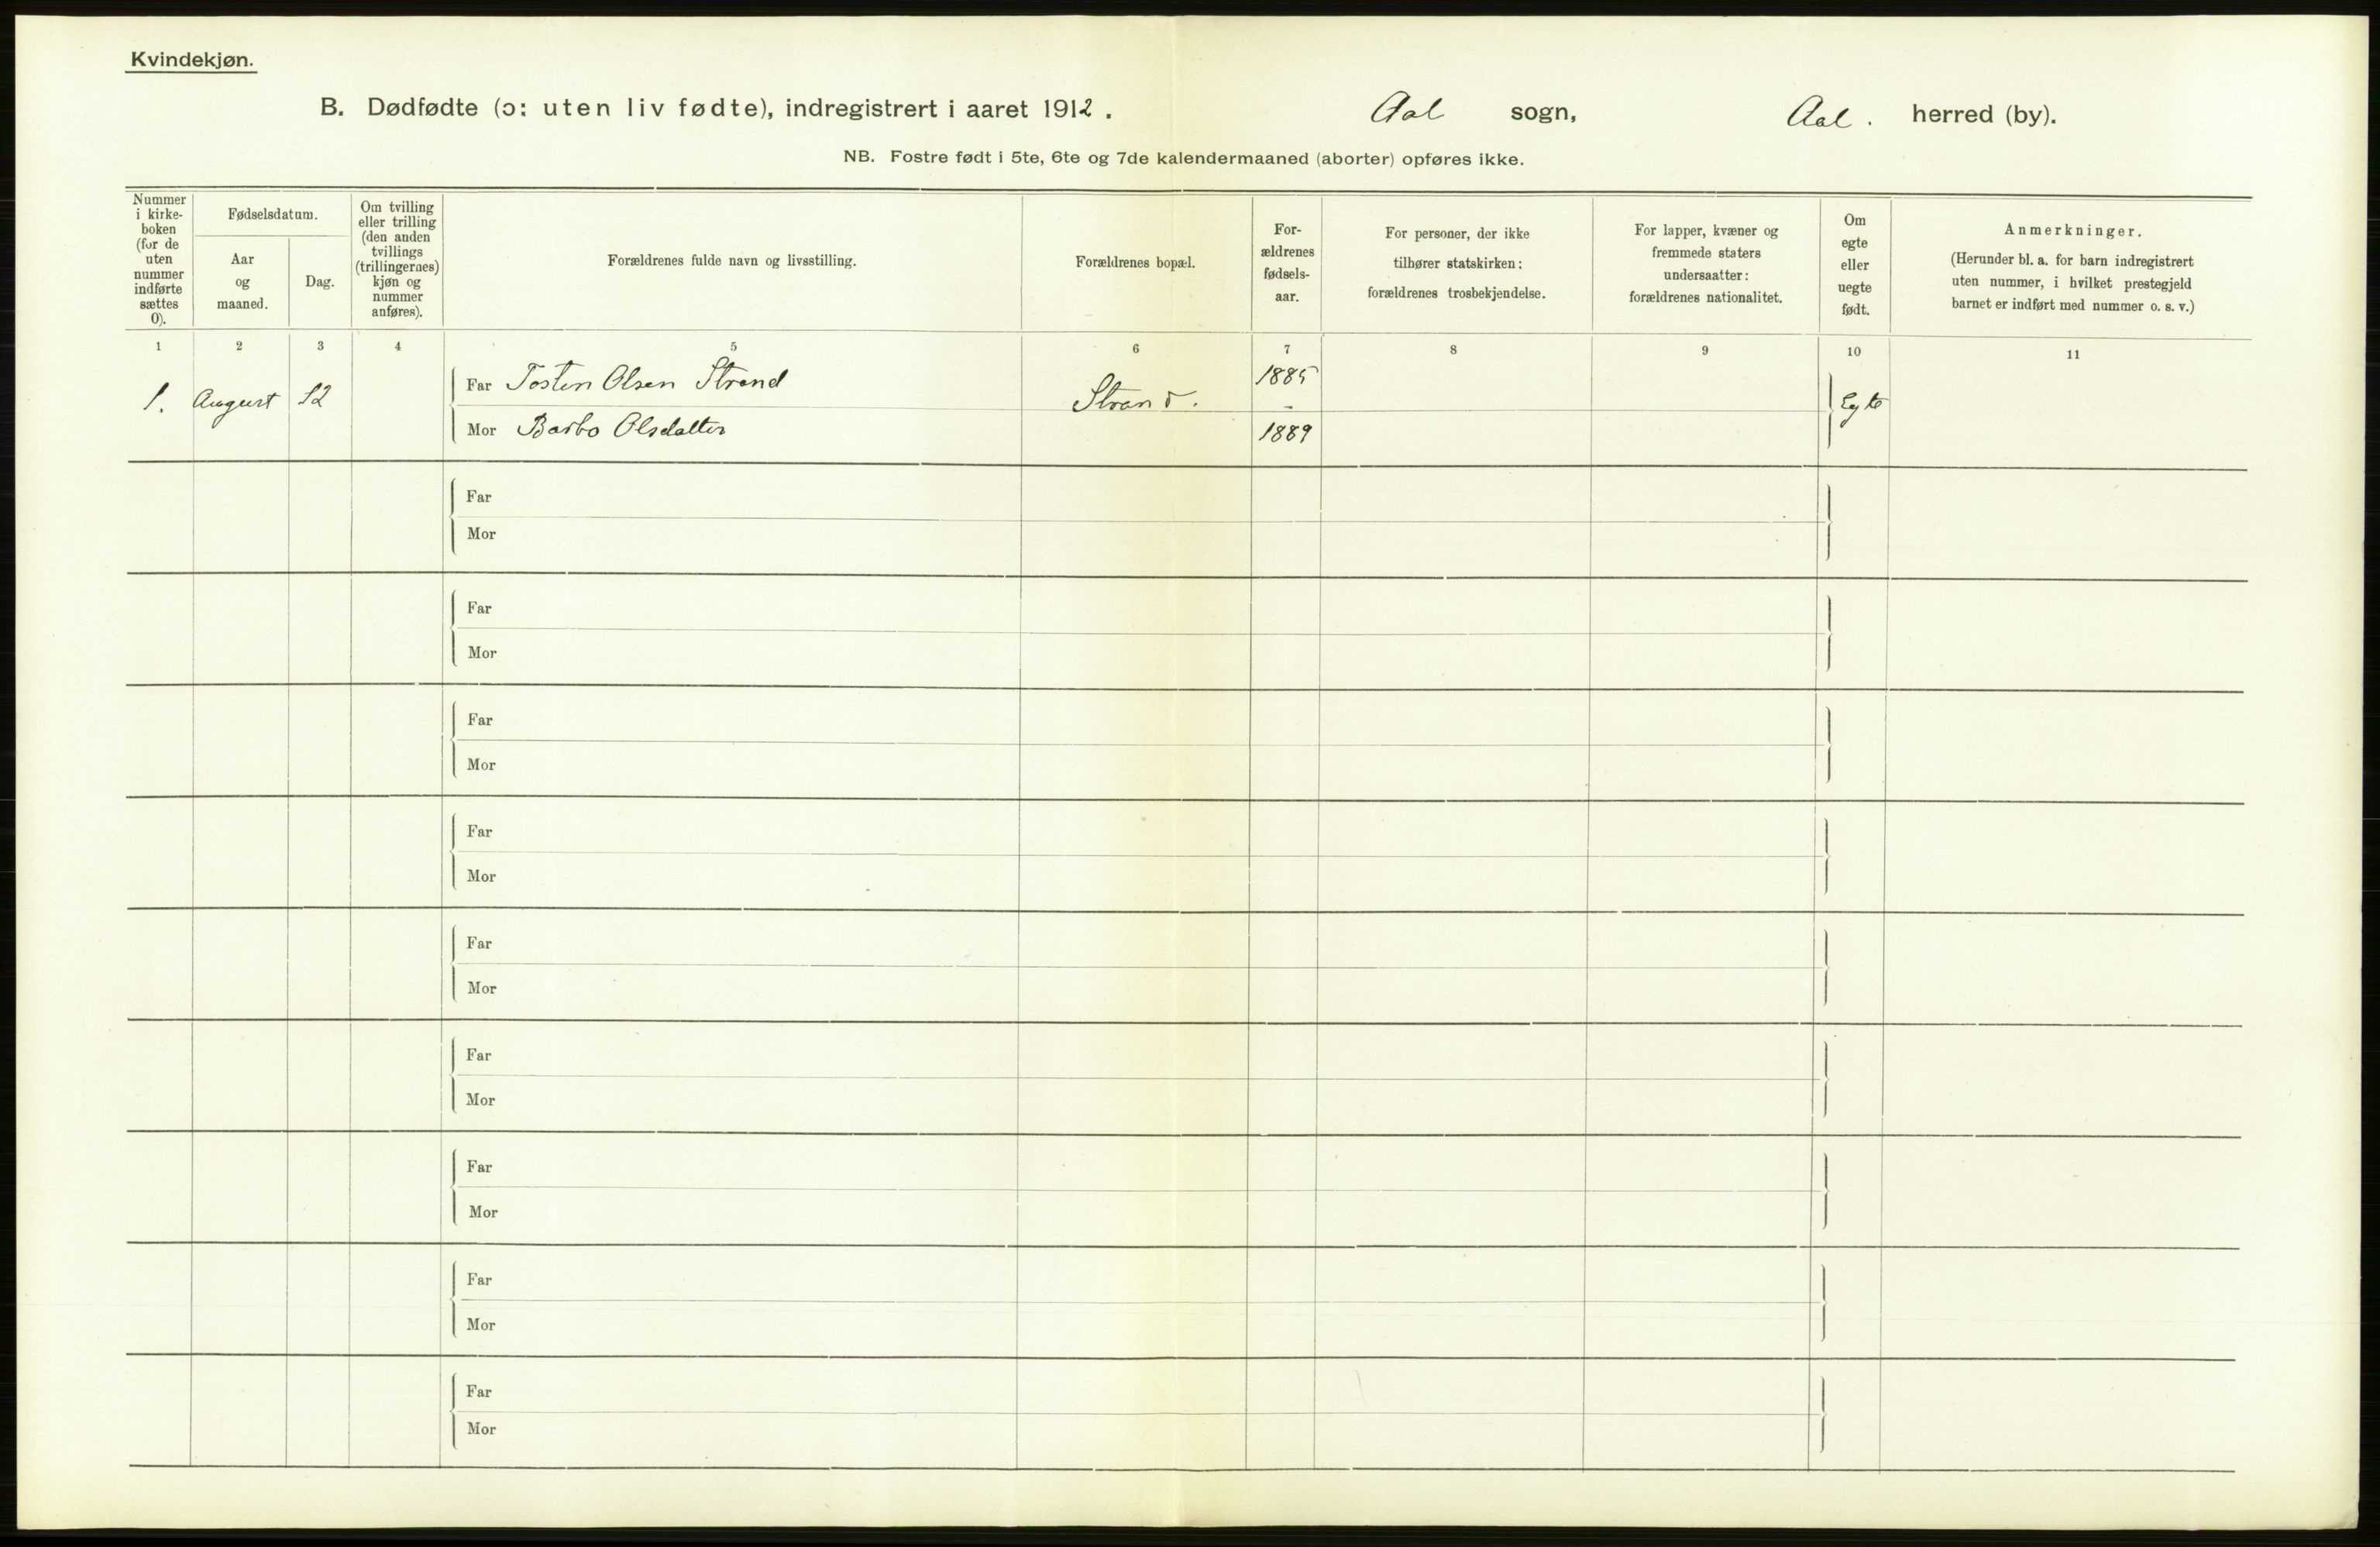 Kvindekjøn.
B. Dødfødte (ɔ: uten liv fødte), indregistrert i aaret 1912. Aal sogn, Aal. herred (by).
NB. Fostre født i 5te, 6te og 7de kalendermaaned (aborter) opføres ikke.
Nummer
i kirke-
boken
(for de
uten
nummer
indførte
sættes
0).
Fødselsdatum.
Aar
og
maaned.
Dag.
Om tvilling
eller trilling
(den anden
tvillings
(trillingernes)
kjøn og
nummer
anføres).
Forældrenes fulde navn og livsstilling.
Forældrenes bopæl.
For-
ældrenes
fødsels-
aar.
For personer, der ikke
tilhører statskirken:
forældrenes trosbekjendelse.
For lapper, kvæner og
fremmede staters
undersaatter:
forældrenes nationalitet.
Om
egte
eller
uegte
født.
Anmerkninger.
(Herunder bl. a. for barn indregistrert
uten nummer, i hvilket prestegjeld
barnet er indført med nummer o. s. v.)
1 2 3 4 5 6 7 8 9 10 11
Far Tosten Olsen Strand 1885
1. August 12 Strand. - Egte
Mor Barbo Olsdatter 1889
Far
Mor
Far
Mor
Far
Mor
Far
Mor
Far
Mor
Far
Mor
Far
Mor
Far
Mor
Far
Mor